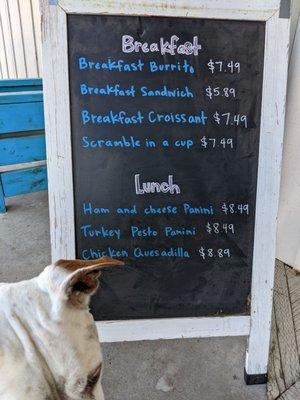 Breakfast
Breakfast Burrito $7.49
Breakfast Sandwich $5.89
Breakfast Croissant $7.49
Scramble in a cup $7.49
Lunch
Ham and cheese Panini $8.49
Turkey Pesto Panini $8.49
Chicken Quesadilla $8.89